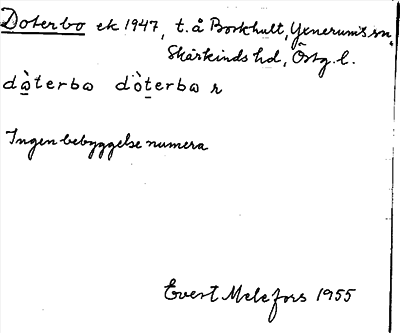 Doterbo ek 1947, t. å Borkhult, Yxnerums sn,
Skärkinds hd, Östg. l.
dò̤terbo dòt̠erbo r
Ingen bebyggelse numera
Evert Melefors 1955